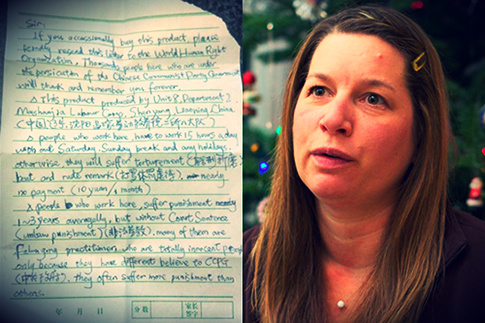 Sir:
If you occassionally buy this product, please
kindly resend this letter to the World Human Right
Organization. Thousands people here who are under
the persicution of the Chinese Communist Party Government
will thank and remember you forever.
This product produced by Unit 8, Department 2,
Masanjia Labour Camp, Shenyang, Liaoning, China
(中国,辽宁,沈阳,马三家
People who work here have to work 15 hours a day
with out Saturday, Sunday break and any holidays,
otherwise, they will suffer torturement
beat and rude remark nearly
no payment (10 yuan/1 month)
People who work here, suffer punishment
1~3 years averagely, but without Court Sentence
(unlaw punishment) (非法劳教), many of them are
Falun gong practitioner, who are totally innocent people
only because they have different believe to CCPG
they often suffer more punishment than
others.
年 月 日 分数 家长
签字